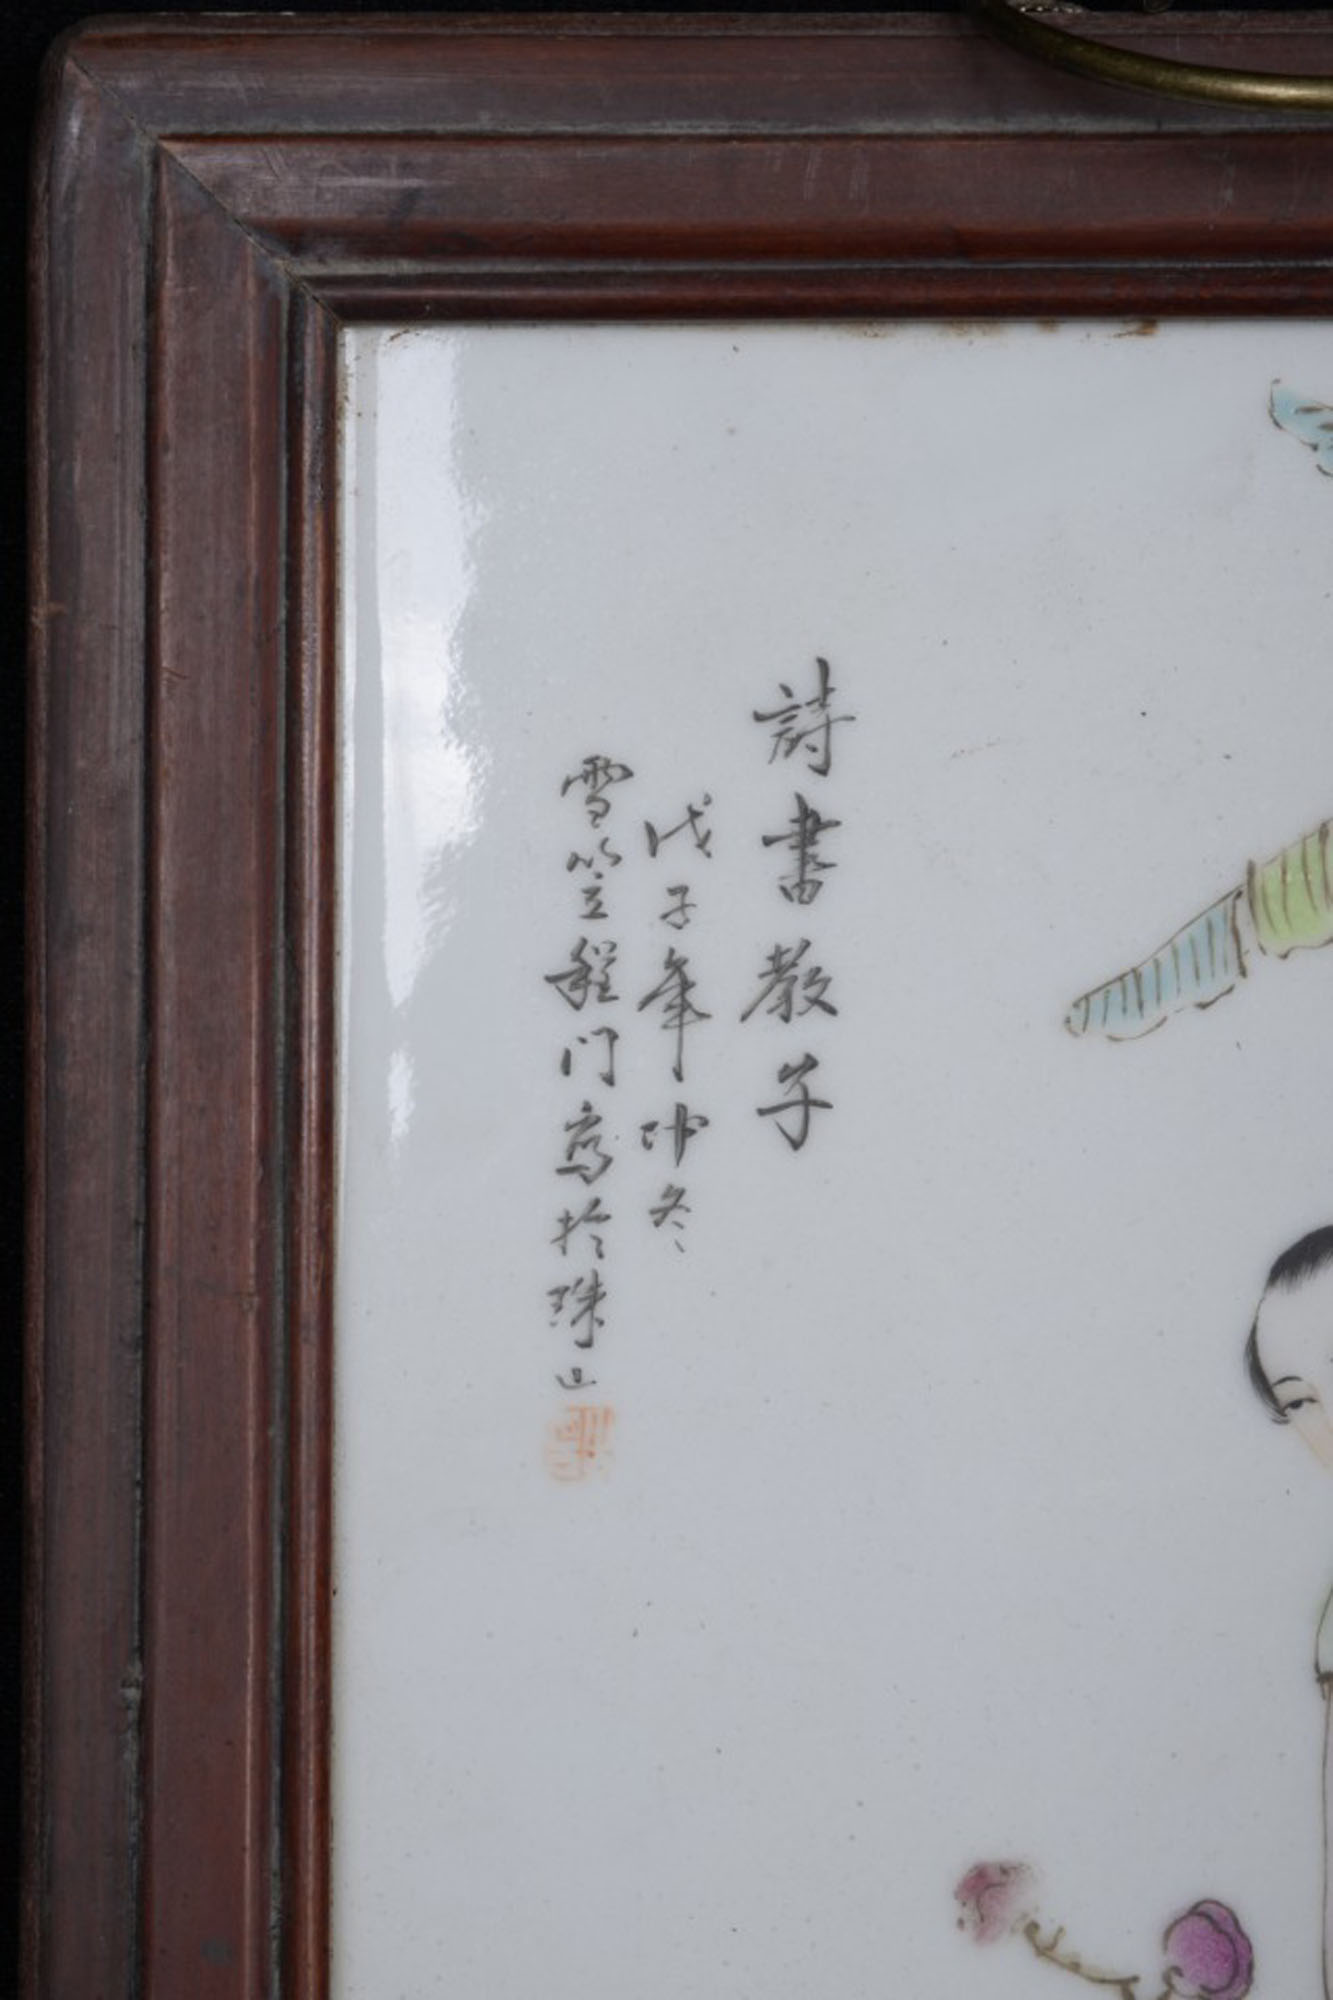 詩書教子
戊子年仲冬
雪笠程门寫於珠山